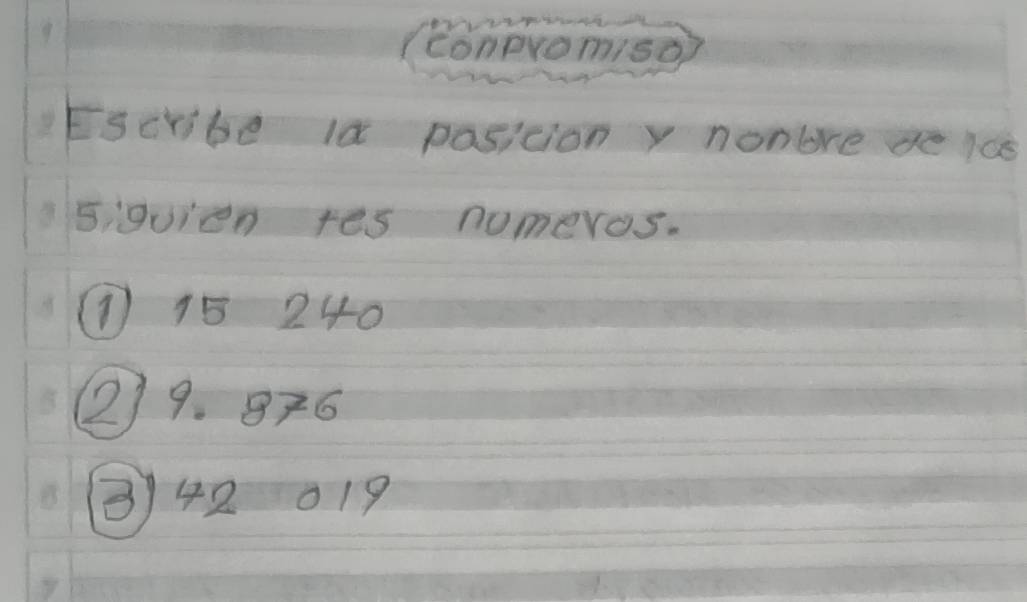 (conpromiso)
Escribe la posicion y nonbre de los
siguien tes numeros.
① 15 240
② 9. 876
③ 42 019